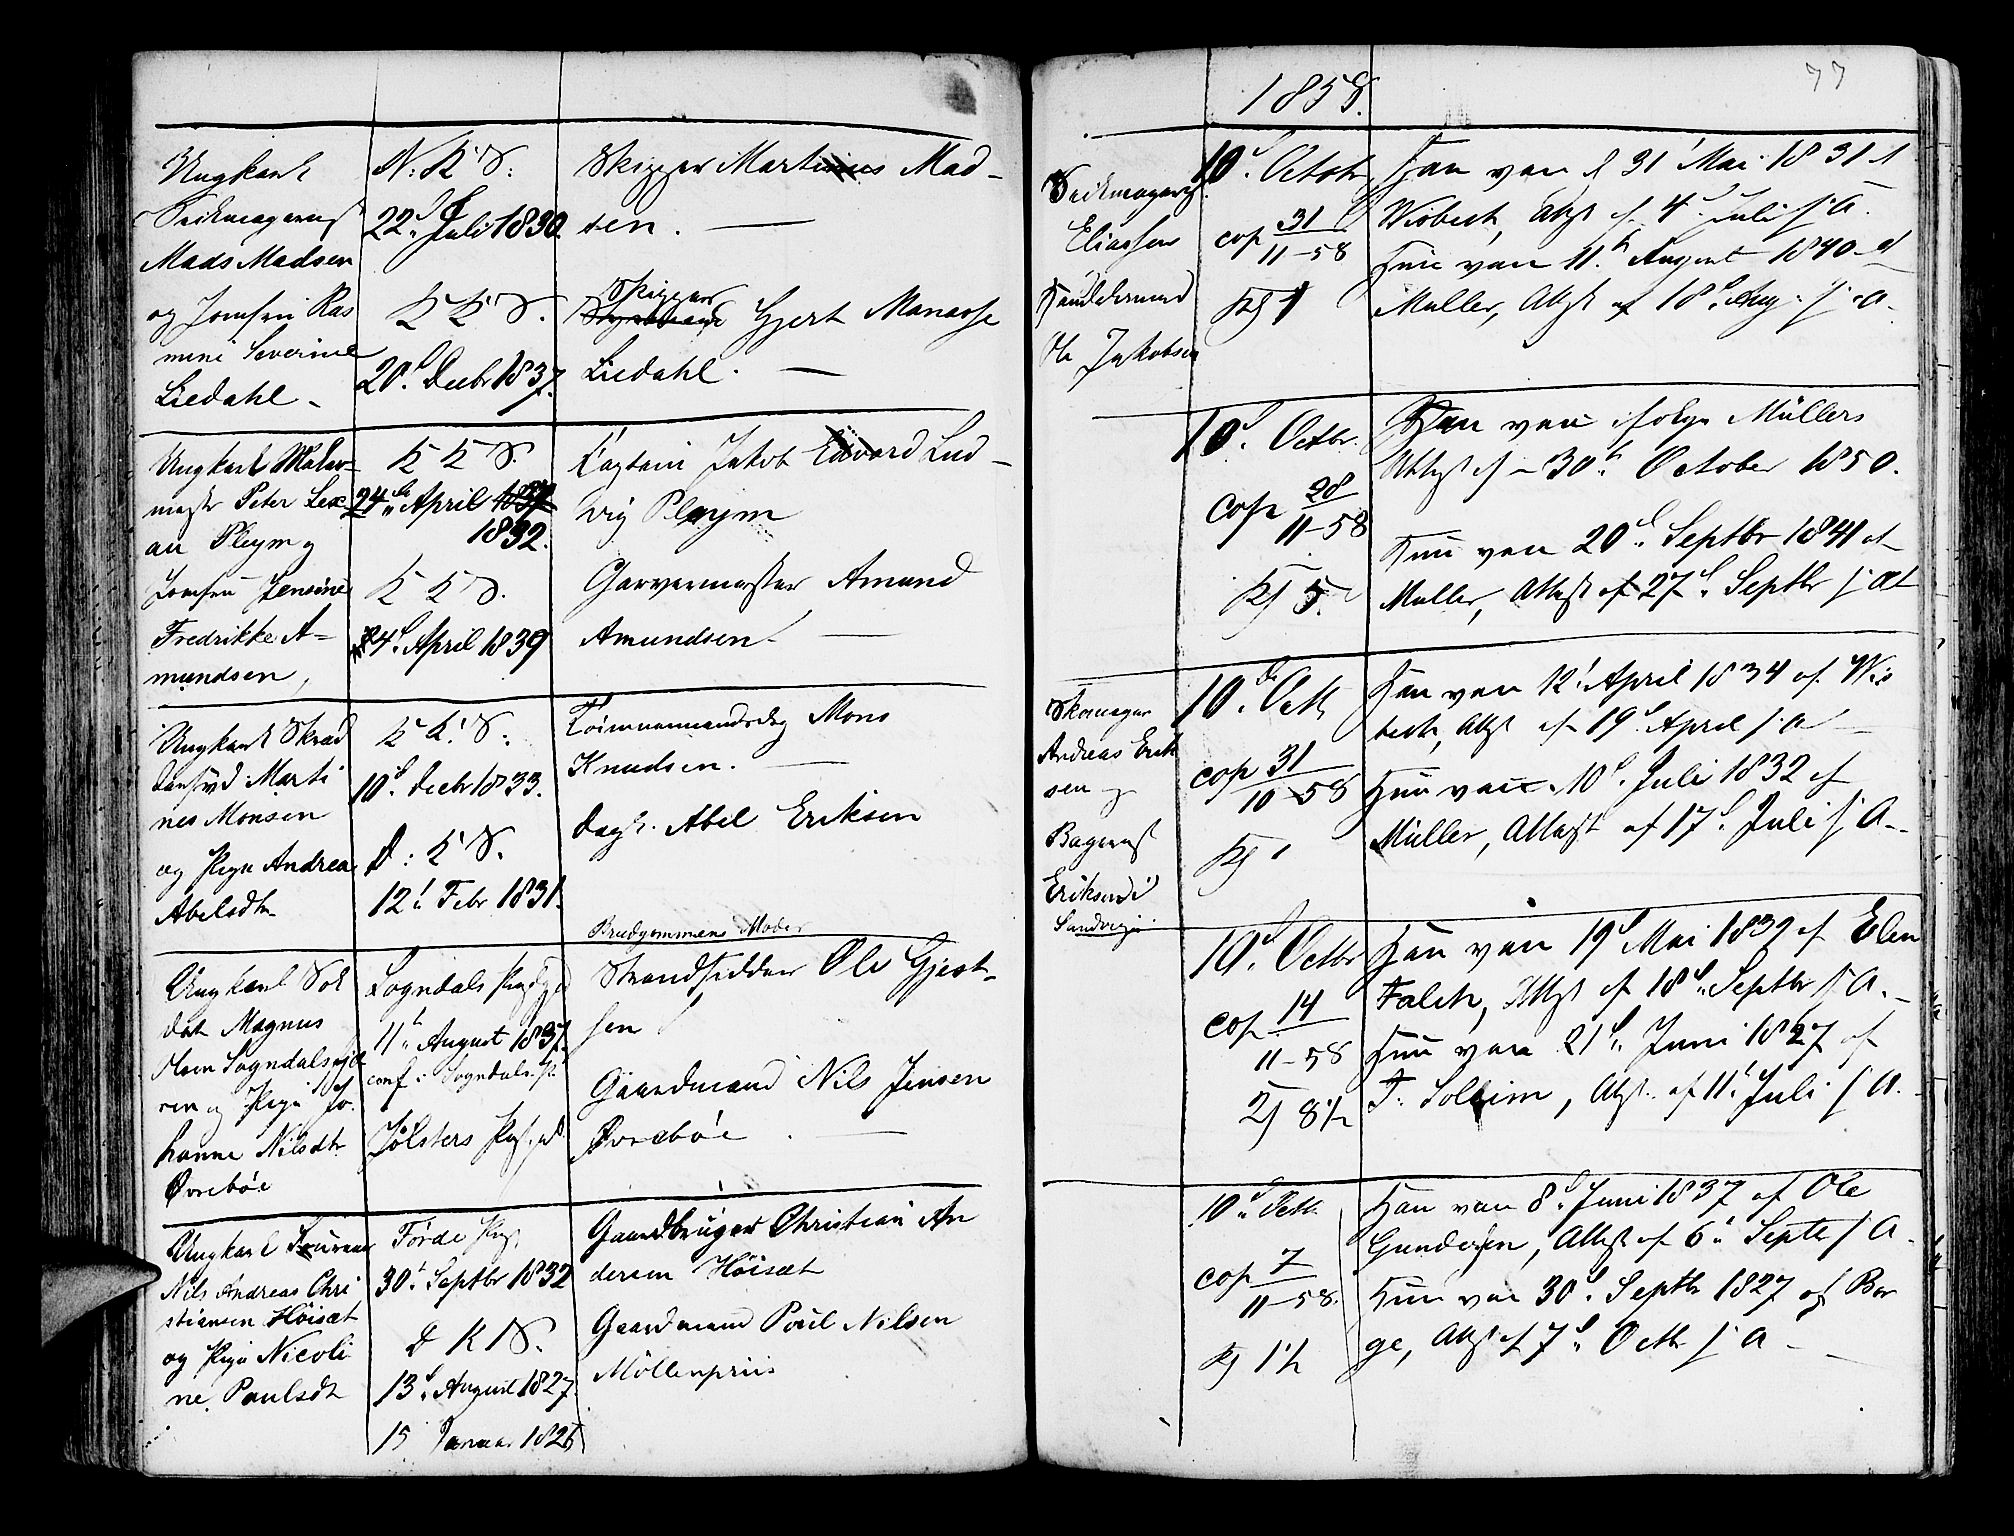 1858.
77
Ungkarl
Mads Madsen
og Jomfru Ras
mine Severine
Liedahl
N: K: S:
22d Juli 1830.
K K S.
20d Decbr 1837.
Skipper Martinius Mad-
sen.
Skipper
Gjert Manasse
Liedahl.
Eliassen
Ole Jakobsen
10d. Octobr
cop 31/11-58
Han vacc d 31' Mai 1831 af
Wisbech, Attest af 4d Juli s: A.
Hun vacc 11te August 1840 af
Müller, Attst af 18d Aug: s: A.
Ungkarl Maler-
mester Peter Lex
au Pleym og
Jomfru Jensine
Fredrikke A-
mundsen,
K K S.
24de April 1837
1832.
K K S.
24d. April 1839
Captain Jakob Edvard Lud-
vig Pleym
Garvermester Amund
Amundsen.
10d. Octbr.
cop 28/11-58
5
Han vacc ifølge Müllers
Attest af 30te October 1850.
Hun vacc 20d. Septbr 1841 af
Müller, Attest af 27d. Septbr s: A
Ungkarl Skræd
dersvd Marti
nes Monsen
og Pige Andrea
Abelsdtr
K K: S:
10d. Decbr 1833.
D: K S.
12' Febr 1831.
Tømmermandsdrg Mons
Knudsen.
Dagl. Abel Eriksen
Skomager
Andreas Erik
sen
Bager
Eriksen i
Sandvigen
10de Octb
cop 31/10-58
Han vacc 12' April 1834 af Wis
bech, Attst af 19d April s: A
Hun vacc 10d. Juli 1832 af
Müller, Attest af 17d. Juli s: A.
Ungkarl Sol
dat Magnus
Olsen Sogndalsejd
ren og Pige Jo-
hanne Nilsdtr
Øvrebøe
Sogndals Pgjd
11te August 1837.
conf: i Sogndals
Jølsters Pgjd
Brudgommens Moder
Strandsidder Ole Gjert-
sen
Gaardmand Nils Jensen
Øvrebøe
10d Octbr
cop 14/11-58
Han vacc 19d Mai 1832 af Elen
Falch, Attst af 18d. Septbr s: A.
Hun vacc 21d. Juni 1827 af
T. Solheim, Attst. af 11' Juli s: A.
Ungkarl
Nils Andreas Chri
stiansen Höisæt
og Pige Nicoli
ne Paulsdt
Førde Pgj.
30te Septbr 1832
D K S.
13d. August 1827.
15 Januar 1826
Gaardbruger Christian An
dersen Höisæt
Gaardmand Poul Nilsen
Möllenpriis
10d. Octb.
cop 7/11-58.
Han vacc 8d. Juni 1837 af Ole
Gundersen, Attst af 6' Septb s: A.
Hun vac 30d. Septbr 1827 af Bor
ge, Attst af 7d. Octbr s: A